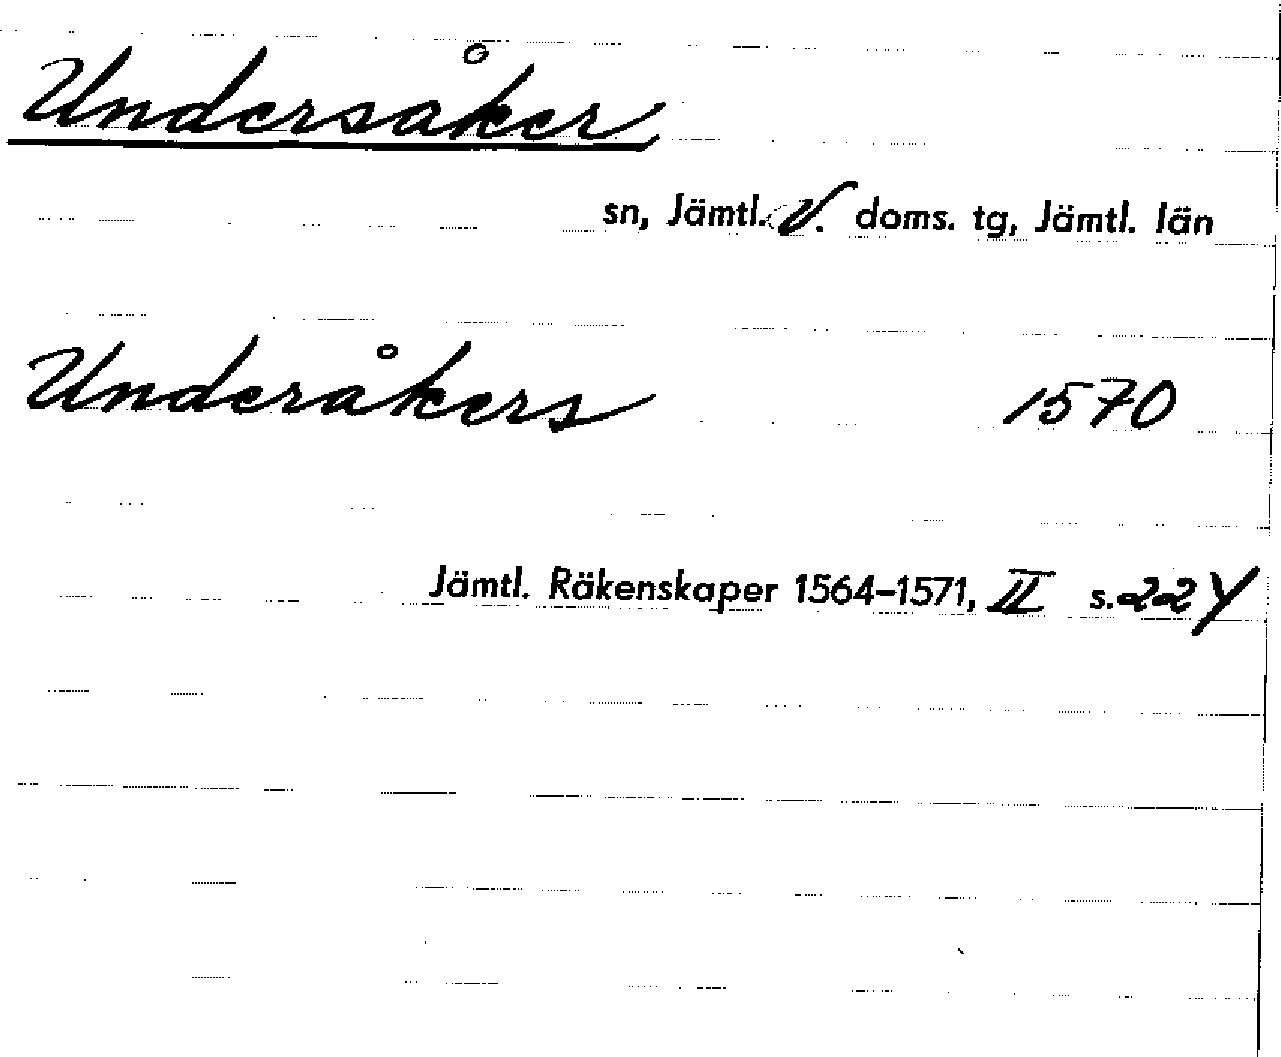 Undersåker
sn, Jämtl. V. doms. tg, Jämtl. län
Underåkers 1570
Jämtl. Räkenskaper 1564–1571, II s. 224